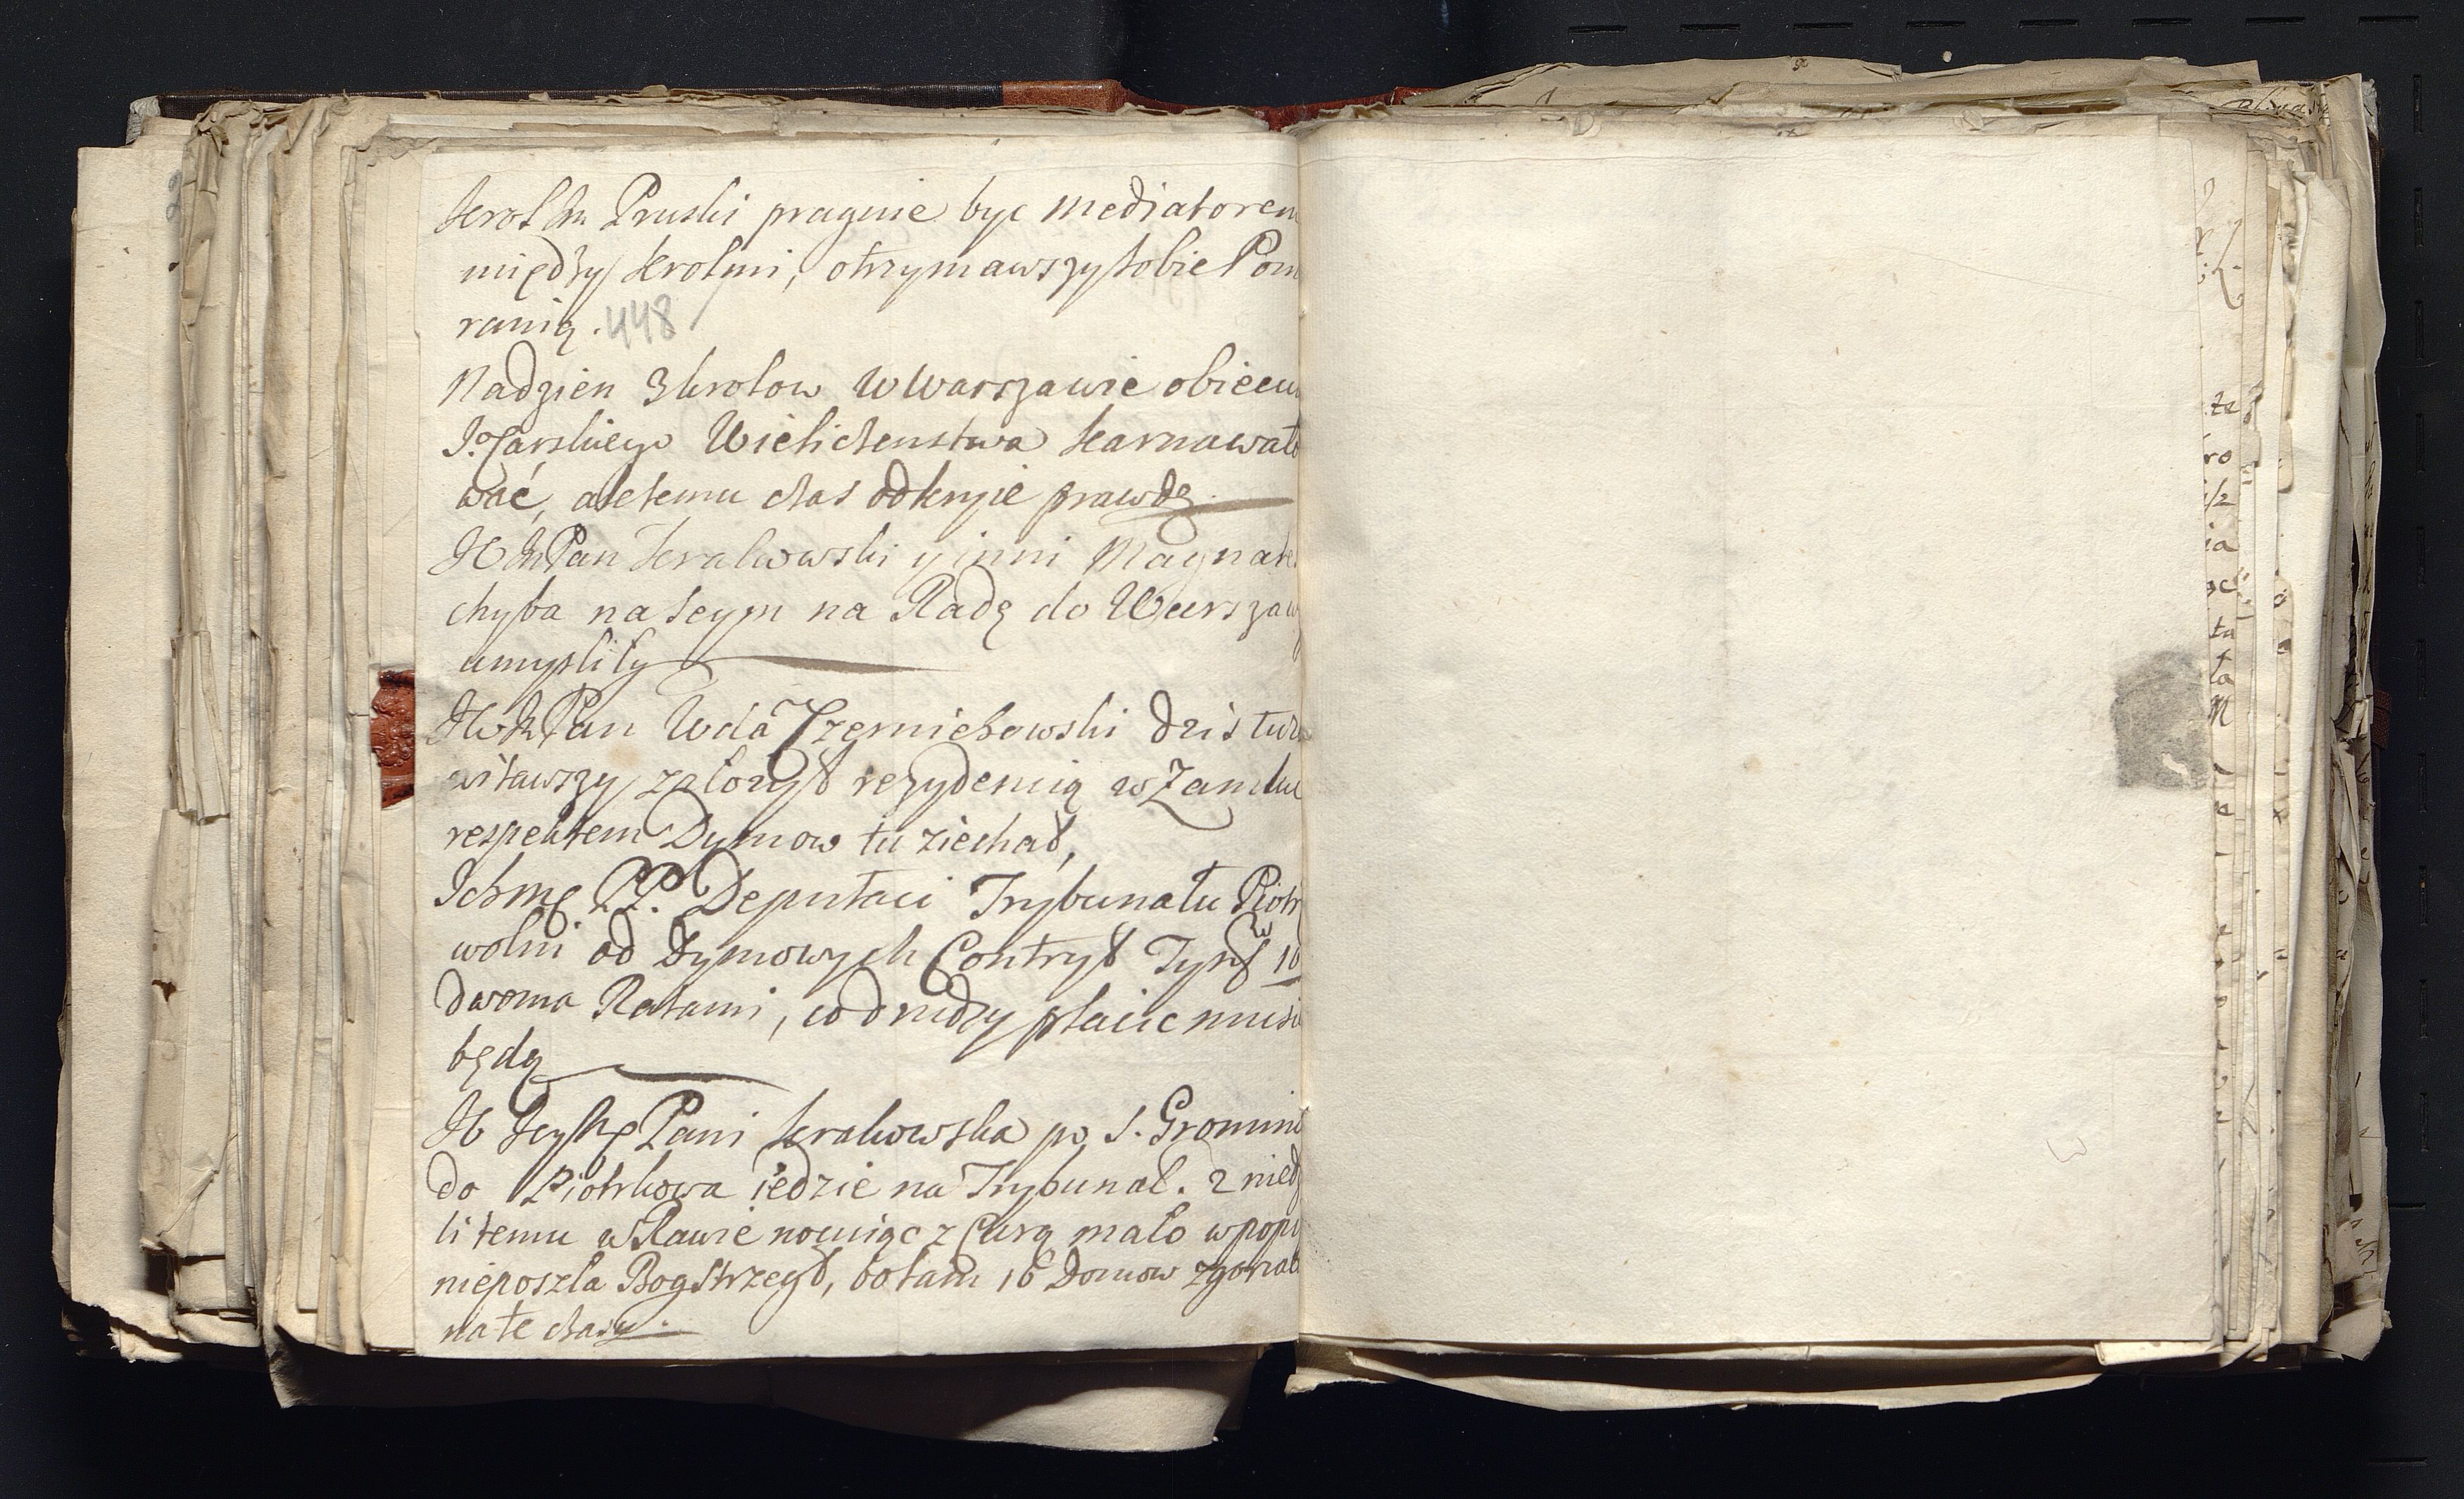 Krol Jm Pruski pragnie byc Mediatorem
między Krolmi, otrzymawszy sobie Pom
ranią. 448
Nadzien 3 krolow w Warszawie obiecu
Jo Carskiego Wieliczenstwa karnawało
wać, ale temu czas odkryie prawdę.
JW Jm Pan Krakowski y inni Magnate
chyba na seym na Radę do Warszaw
umysliły
JW Jm Pan Wda Czerniechowski dzis tu
witawszy założył rezydencią w Zamku
respektem Dymow tu ziechał,
Ichmę PP. Deputaci Trybunału Piotr
wolni od Dymowych Contryb Tyną 10
dwoma Ratami, co drudzy płacic musi
będą
JW Jeymę Pani Krakowska po S. Gromni
do Piotrkowa iedzie na Trybunał. 2 nied
li temu w Rawie nocuiąc z Curą mało w popi
nieposzła Bog strzegł, bo tam 16 Domow zgorzał
na te czasy.
3